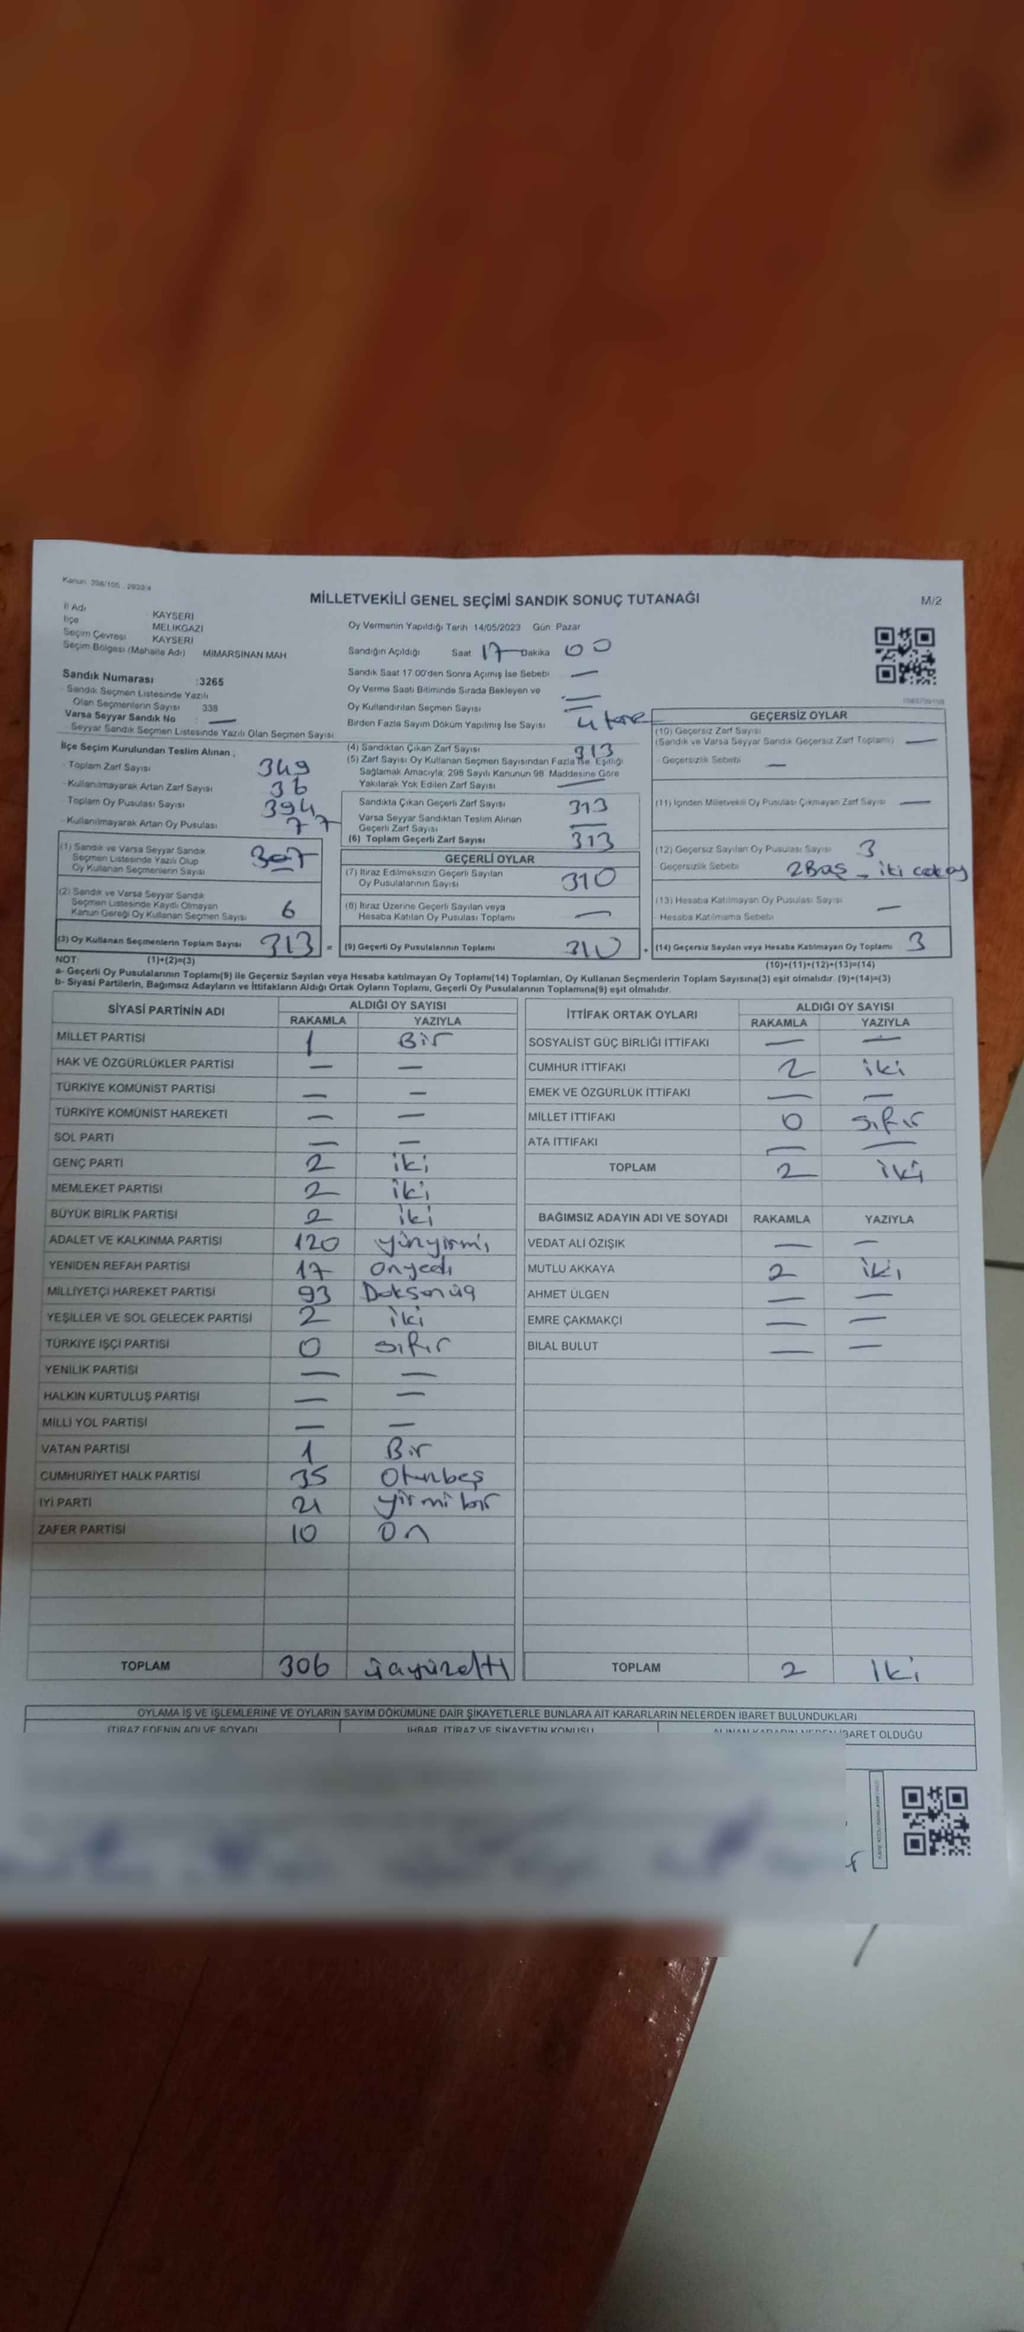 Kanun: 298/105 , 2920/4
MİLLETVEKİLİ GENEL SEÇİMİ SANDIK SONUÇ TUTANAĞI
M/2
İl Adı KAYSERİ
İlçe MELİKGAZİ
Seçim Çevresi KAYSERİ
Seçim Bölgesi (Mahalle Adı) MİMARSİNAN MAH
Sandık Numarası :3265
- Sandık Seçmen Listesinde Yazılı
Olan Seçmenlerin Sayısı 338
Varsa Seyyar Sandık No —
- Seyyar Sandık Seçmen Listesinde Yazılı Olan Seçmen Sayısı
Oy Vermenin Yapıldığı Tarih 14/05/2023 Gün Pazar
Sandığın Açıldığı Saat 17 Dakika 00
Sandık Saat 17.00'den Sonra Açılmış İse Sebebi —
Oy Verme Saati Bitiminde Sırada Bekleyen ve
Oy Kullandırılan Seçmen Sayısı
Birden Fazla Sayım Döküm Yapılmış İse Sayısı
İlçe Seçim Kurulundan Teslim Alınan ;
- Toplam Zarf Sayısı 349
- Kullanılmayarak Artan Zarf Sayısı 36
- Toplam Oy Pusulası Sayısı 394
- Kullanılmayarak Artan Oy Pusulası 77
(1) Sandık ve Varsa Seyyar Sandık
Seçmen Listesinde Yazılı Olup
Oy Kullanan Seçmenlerin Sayısı 307
(2) Sandık ve Varsa Seyyar Sandık
Seçmen Listesinde Kayıtlı Olmayan
Kanun Gereği Oy Kullanan Seçmen Sayısı 6
(3) Oy Kullanan Seçmenlerin Toplam Sayısı 313 =
(4) Sandıktan Çıkan Zarf Sayısı 313
(5) Zarf Sayısı Oy Kullanan Seçmen Sayısından Fazla İse, Eşitliği
Sağlamak Amacıyla; 298 Sayılı Kanunun 98. Maddesine Göre
Yakılarak Yok Edilen Zarf Sayısı —
Sandıkta Çıkan Geçerli Zarf Sayısı 313
Varsa Seyyar Sandıktan Teslim Alınan
Geçerli Zarf Sayısı —
(6) Toplam Geçerli Zarf Sayısı 313
GEÇERLİ OYLAR
(7) İtiraz Edilmeksizin Geçerli Sayılan
Oy Pusulalarının Sayısı 310
(8) İtiraz Üzerine Geçerli Sayılan veya
Hesaba Katılan Oy Pusulası Toplamı —
(9) Geçerli Oy Pusulalarının Toplamı 310 +
GEÇERSİZ OYLAR
(10) Geçersiz Zarf Sayısı
(Sandık ve Varsa Seyyar Sandık Geçersiz Zarf Toplamı) —
- Geçersizlik Sebebi —
(11) İçinden Milletvekili Oy Pusulası Çıkmayan Zarf Sayısı —
(12) Geçersiz Sayılan Oy Pusulası Sayısı 3
- Geçersizlik Sebebi 2 Boş - iki
(13) Hesaba Katılmayan Oy Pusulası Sayısı —
- Hesaba Katılmama Sebebi
(14) Geçersiz Sayılan veya Hesaba Katılmayan Oy Toplamı 3
NOT: (1)+(2)=(3)
(10)+(11)+(12)+(13)=(14)
a- Geçerli Oy Pusulalarının Toplamı(9) ile Geçersiz Sayılan veya Hesaba katılmayan Oy Toplamı(14) Toplamları, Oy Kullanan Seçmenlerin Toplam Sayısına(3) eşit olmalıdır. (9)+(14)=(3)
b- Siyasi Partilerin, Bağımsız Adayların ve İttifakların Aldığı Ortak Oyların Toplamı, Geçerli Oy Pusulalarının Toplamına(9) eşit olmalıdır.
SİYASİ PARTİNİN ADI ALDIĞI OY SAYISI
RAKAMLA YAZIYLA
MİLLET PARTİSİ 1 Bir
HAK VE ÖZGÜRLÜKLER PARTİSİ — —
TÜRKİYE KOMÜNİST PARTİSİ — —
TÜRKİYE KOMÜNİST HAREKETİ — —
SOL PARTİ — —
GENÇ PARTİ 2 iki
MEMLEKET PARTİSİ 2 iki
BÜYÜK BİRLİK PARTİSİ 2 iki
ADALET VE KALKINMA PARTİSİ 120 yüzyirmi
YENİDEN REFAH PARTİSİ 17 onyedi
MİLLİYETÇİ HAREKET PARTİSİ 93 Doksanüç
YEŞİLLER VE SOL GELECEK PARTİSİ 2 iki
TÜRKİYE İŞÇİ PARTİSİ 0 sıfır
YENİLİK PARTİSİ — —
HALKIN KURTULUŞ PARTİSİ — —
MİLLİ YOL PARTİSİ — —
VATAN PARTİSİ 1 Bir
CUMHURİYET HALK PARTİSİ 35 Otuzbeş
İYİ PARTİ 21 yirmi bir
ZAFER PARTİSİ 10 On
TOPLAM 306 üçyüzaltı
İTTİFAK ORTAK OYLARI ALDIĞI OY SAYISI
RAKAMLA YAZIYLA
SOSYALİST GÜÇ BİRLİĞİ İTTİFAKI — —
CUMHUR İTTİFAKI 2 iki
EMEK VE ÖZGÜRLÜK İTTİFAKI — —
MİLLET İTTİFAKI 0 sıfır
ATA İTTİFAKI — —
TOPLAM 2 iki
BAĞIMSIZ ADAYIN ADI VE SOYADI RAKAMLA YAZIYLA
VEDAT ALİ ÖZIŞIK — —
MUTLU AKKAYA 2 iki
AHMET ÜLGEN — —
EMRE ÇAKMAKÇI — —
BİLAL BULUT — —
TOPLAM 2 iki
OYLAMA İŞ VE İŞLEMLERİNE VE OYLARIN SAYIM DÖKÜMÜNE DAİR ŞİKAYETLERLE BUNLARA AİT KARARLARIN NELERDEN İBARET BULUNDUKLARI
İTİRAZ EDENİN ADI VE SOYADI İHBAR, İTİRAZ VE ŞİKAYETİN KONUSU ALINAN KARARIN NEDEN İBARET OLDUĞU